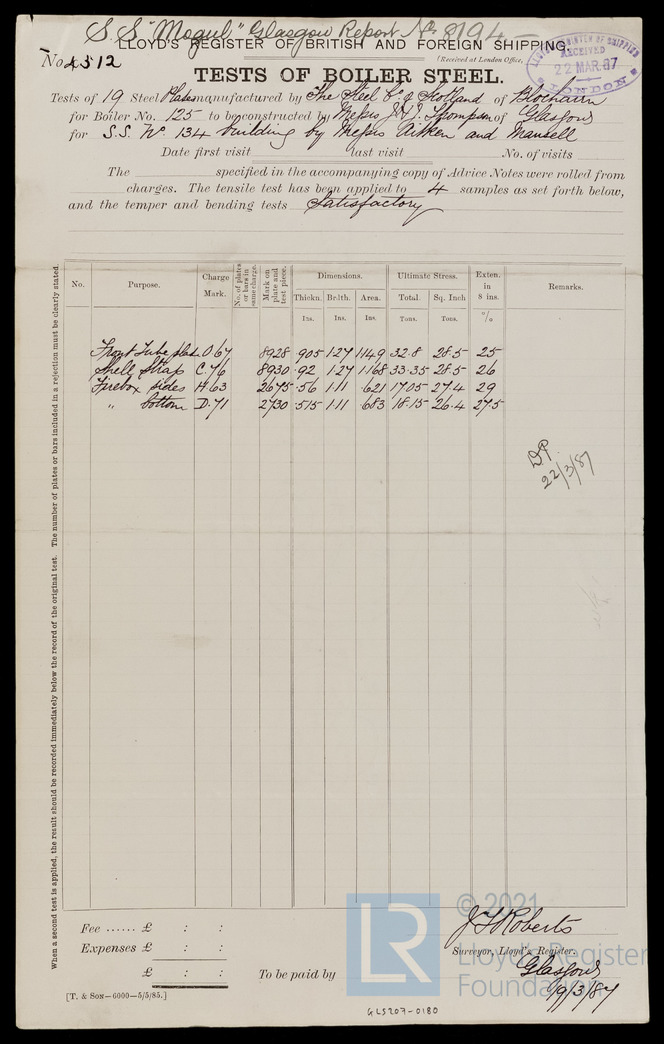 S.S "Mogul" Glasgow Report No 8194
LLOYD'S REGISTER OF BRITISH AND FOREIGN SHIPPING.
No. 4512
(Received at London Office,
LLOYD'S REGISTER OF SHIPPING RECEIVED 22 MAR.87 LONDON
TESTS OF BOILER STEEL.
Tests of 19 Steel Plates manufactured by The Steel Co of Scotland of Blochairn
for Boiler No. 125 to be constructed by Messrs J & T. Thompson of Glasgow
for S.S. No. 134 building by Messrs Aitken and Mansell
Date first visit last visit No. of visits
The specified in the accompanying copy of Advice Notes were rolled from
charges. The tensile test has been applied to 4 samples as set forth below,
and the temper and bending tests Satisfactory
No. Purpose. Charge Mark. No. of plates or bars in same charge. Mark on plate and test piece. Dimensions. Ultimate Stress. Exten. in 8 ins. Remarks.
Thickn. Br.dth. Area. Total. Sq. Inch
Ins. Ins. Ins. Tons. Tons. %
Front Tube plate O.67 8928 .905 1.27 1.149 32.8 28.5 25
Shell Strap C.76 8930 .92 1.27 1.168 33.35 28.5 26
Firebox sides H.63 2675 .56 1.11 .621 17.05 27.4 29
" bottom D.71 2730 .515 1.11 .683 18.15 26.4 27.5
D.P.
22/3/87
When a second test is applied, the result should be recorded immediately below the record of the original test. The number of plates or bars included in a rejection must be clearly stated.
Fee ...... £ : :
Expenses £ : :
£ : :
To be paid by
J F Roberts
Surveyor, Lloyd's Register.
Glasgow
19/3/87
[T. & Son—6000—5/5/85.]
GLS207-0180
LR
© 2021
Lloyd's Register
Foundation